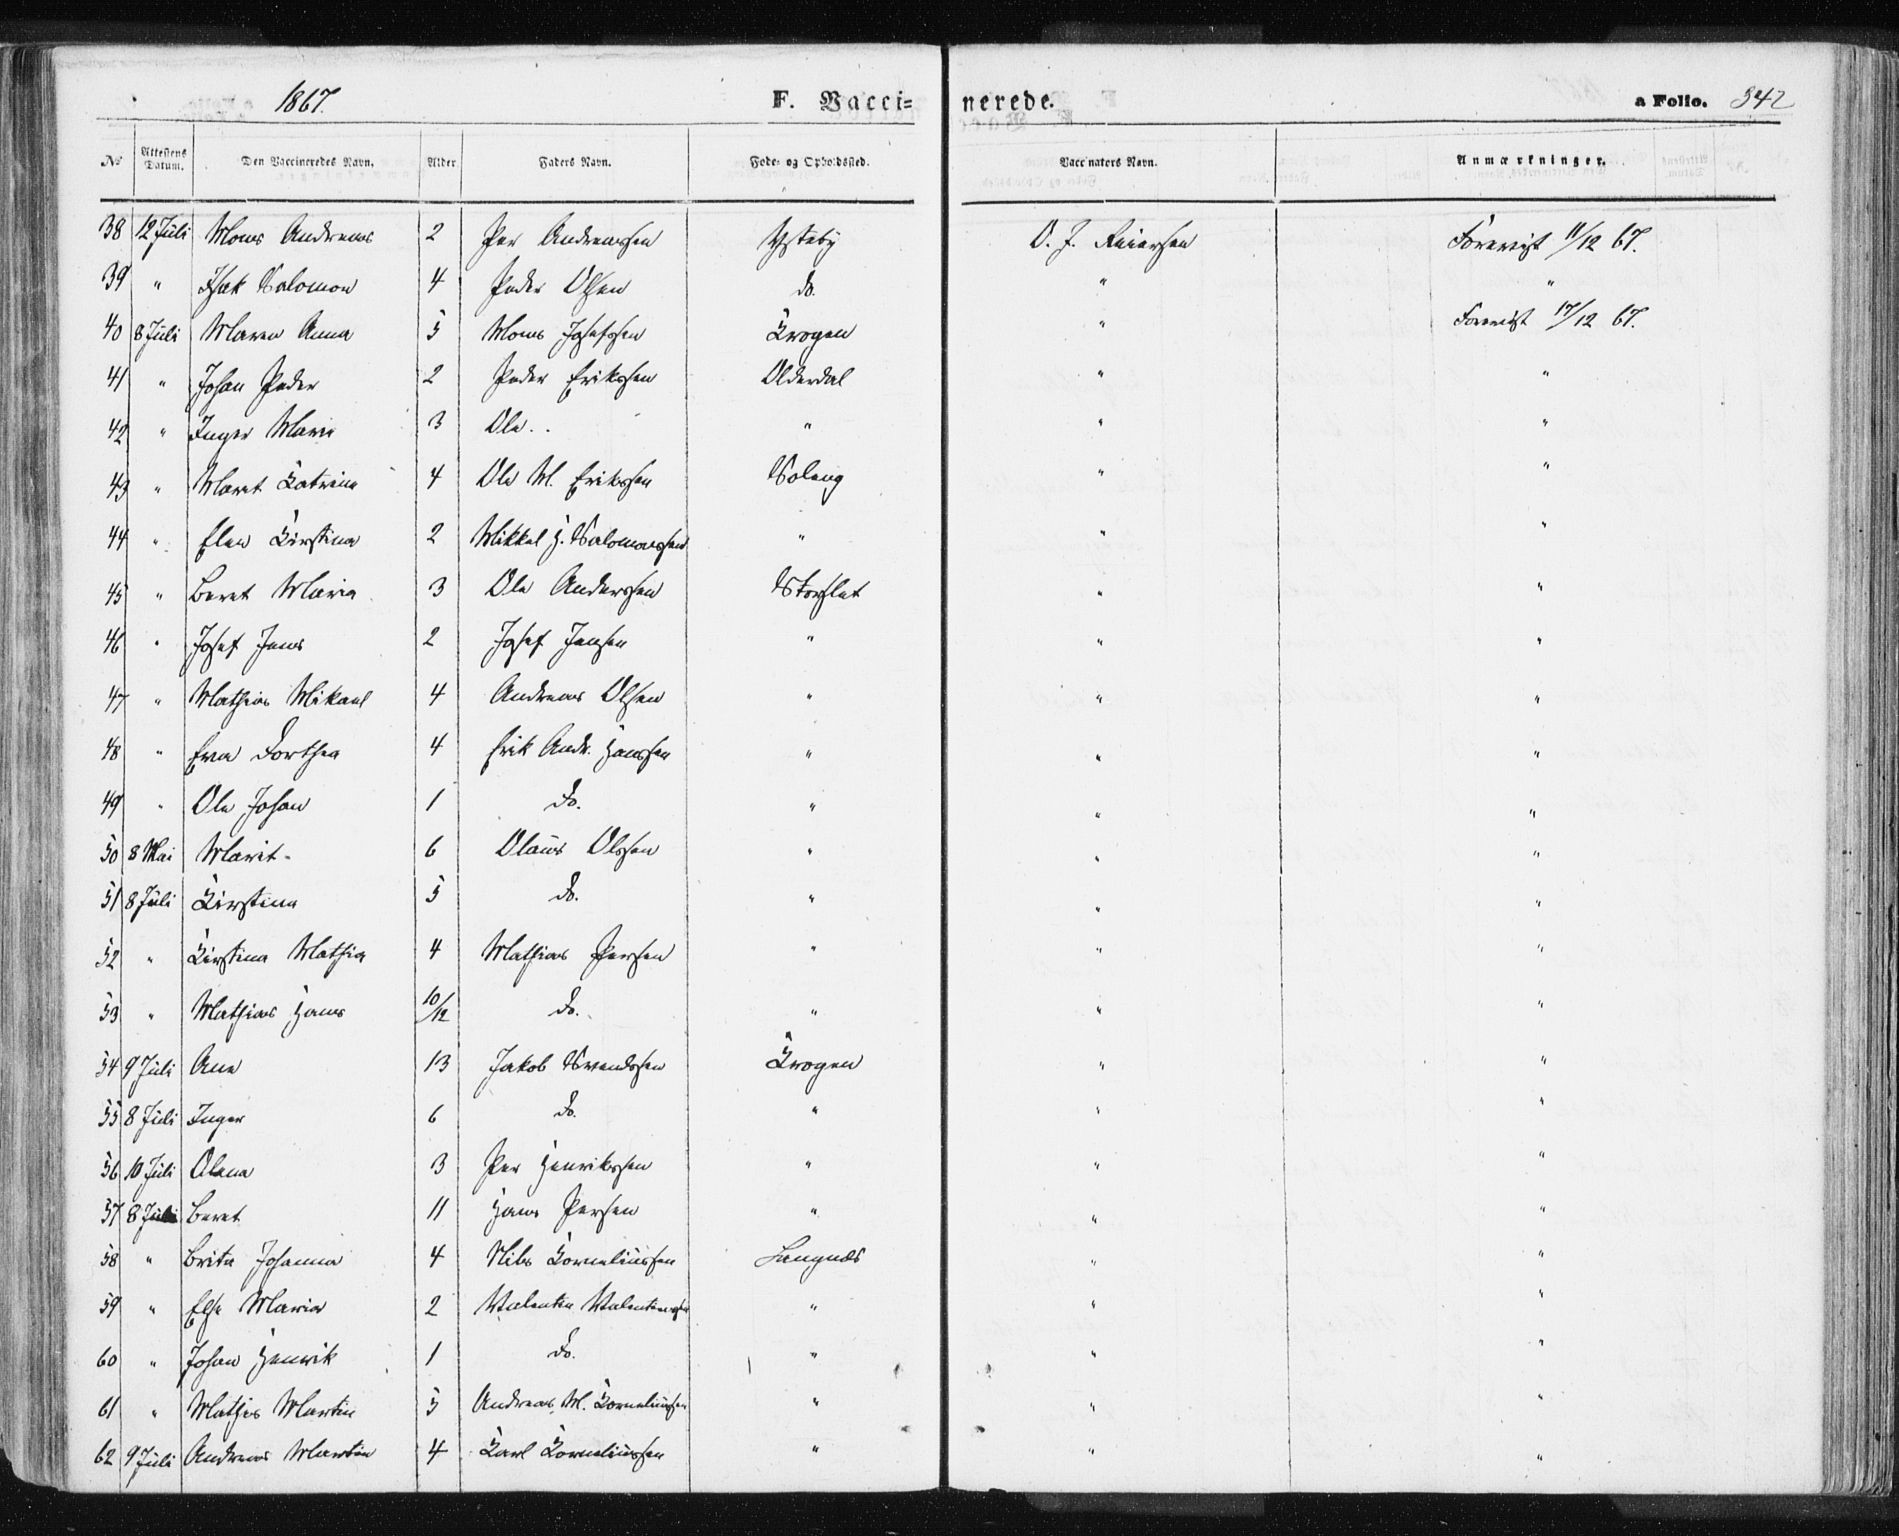 1867. F. Vaccinerede. a Folio. 342
No Attestens Datum. Den Vaccineredes Navn. Alder Faders Navn. Føde- og Opholdssted. Vaccinators Navn. Anmærkninger.
38 12 Juli Mons Andreas 2 Per Andreassen Ysteby O. J. Reiersen Forevist 11/12 67.
39 " Isak Salomon 4 Peder Olsen do. " "
40 8 Juli Maren Anna 5 Mons Josefsen Krogen " Forevist 17/12 67.
41 " Johan Peder 2 Peder Eriksen Olderdal " "
42 " Inger Marie 3 Ole . . " " "
43 " Maret Katrine 4 Ole M. Eriksen Soleng " "
44 " Elen Kirstina 2 Mikkel H. Salomonsen " " "
45 " Beret Maria 3 Ole Anderssen Storslet " "
46 " Josef Jens 2 Josef Jensen " " "
47 " Mathias Mikael 4 Andreas Olsen " " "
48 " Eva Dorthea 4 Erik Andr. Hanssen " " "
49 " Ole Johan 1 do. " " "
50 8 Mai Marit 6 Olaus Olssen " " "
51 8 Juli Kirstina 5 do. " " "
52 " Kirstina Mathia 4 Mathias Persen " " "
53 " Mathias Hans 10/12 do. " " "
54 9 Juli Ane 13 Jakob Svendsen Krogen " "
55 8 Juli Inger 6 do. " " "
56 10 Juli Olena 3 Per Henriksen " " "
57 8 Juli Beret 11 Hans Persen " " "
58 " Brita Johanna 4 Nils Korneliussen Langnæs " "
59 " Else Maria 2 Valentin Valentinsen " " "
60 " Johan Henrik 1 do. " " "
61 " Mathis Martin 5 Andreas M. Korneliussen " " "
62 9 Juli Andreas Martin 4 Karl Korneliussen " " "